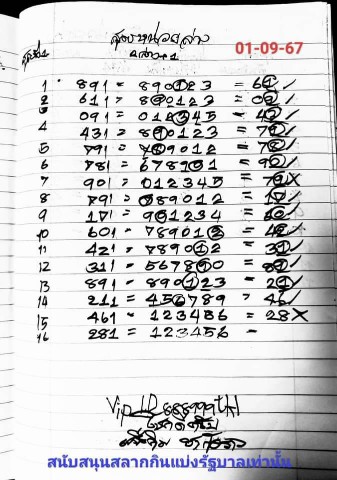 สูตรหน่วยล่าง
01-09-67
1 891 = 890123 = 61 ✓
2 611 = 890123 = 02 ✓
3 091 = 012345 = 42 ✓
4 431 = 890123 = 79 ✓
5 791 = 789012 = 78 ✓
6 781 = 678901 = 90 ✓
7 901 = 012345 = 79 X
8 791 = 789012 = 17 ✓
9 171 = 901234 =
10 601 = 789012 = 42 ✓
11 421 = 789012 = 31 ✓
12 311 = 567890 =
13 891 = 890123 = 21 ✓
14 211 = 456789 = 46 ✓
15 461 = 123456 = 28 X
16 281 = 123456 =
Vip ID
สนับสนุนสลากกินแบ่งรัฐบาลเท่านั้น